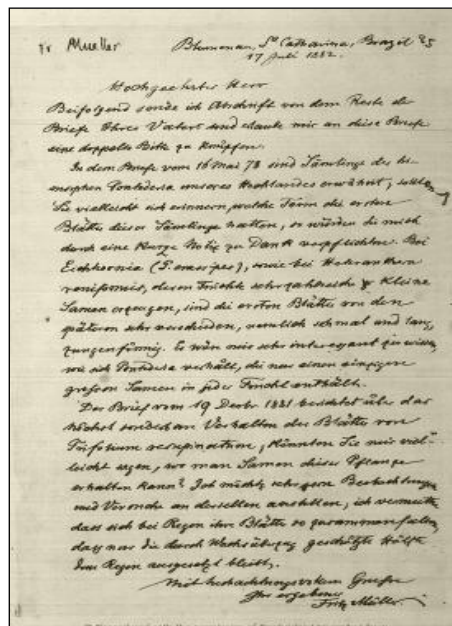 Fr Mueller
Blumenau, Sta Catharina, Brazil 25
17 Juli 1882.
Hochgeehrter Herr
Beifolgend sende ich Abschrift von dem Reste der
Briefe Ihres Vaters und erlaube mir an diese Briefe
eine doppelte Bitte zu knüpfen.
In dem Briefe vom 16 Mai 78 sind Sämlinge der
Pontederia unseres Hochlandes erwähnt; sollten
Sie vielleicht sich erinnern, welche Form die ersten
Blätter dieser Sämlinge hatten, so würden Sie mich
durch eine kurze Notiz zu Dank verpflichten. Bei
Eichhornia (P. crassipes), sowie bei Heteranthera
reniformis, deren Früchte sehr zahlreiche & kleine
Samen erzeugen, sind die ersten Blätter von den
späteren sehr verschieden, nemlich schmal und lang
zungenförmig. Es wäre mir sehr interessant zu wissen,
wie sich Pontederia verhält, die nur einen einzigen
grossen Samen in jeder Frucht enthält.
Der Brief vom 19 Decbr. 1881 berichtet über das
höchst sonderbare Verhalten der Blätter von
Trifolium resupinatum; könnten Sie mir viel-
leicht sagen, wo man Samen dieser Pflanze
erhalten kann? Ich möchte sehr gerne Beobachtungen
und Versuche an derselben anstellen; ich vermuthe
dass sich bei Regen ihre Blätter so zusammenfalten,
dass nur die durch Wachsüberzug geschützte Hälfte
dem Regen ausgesetzt bleibt.
Mit hochachtungsvollem Grusse
Ihr ergebener
Fritz Müller.